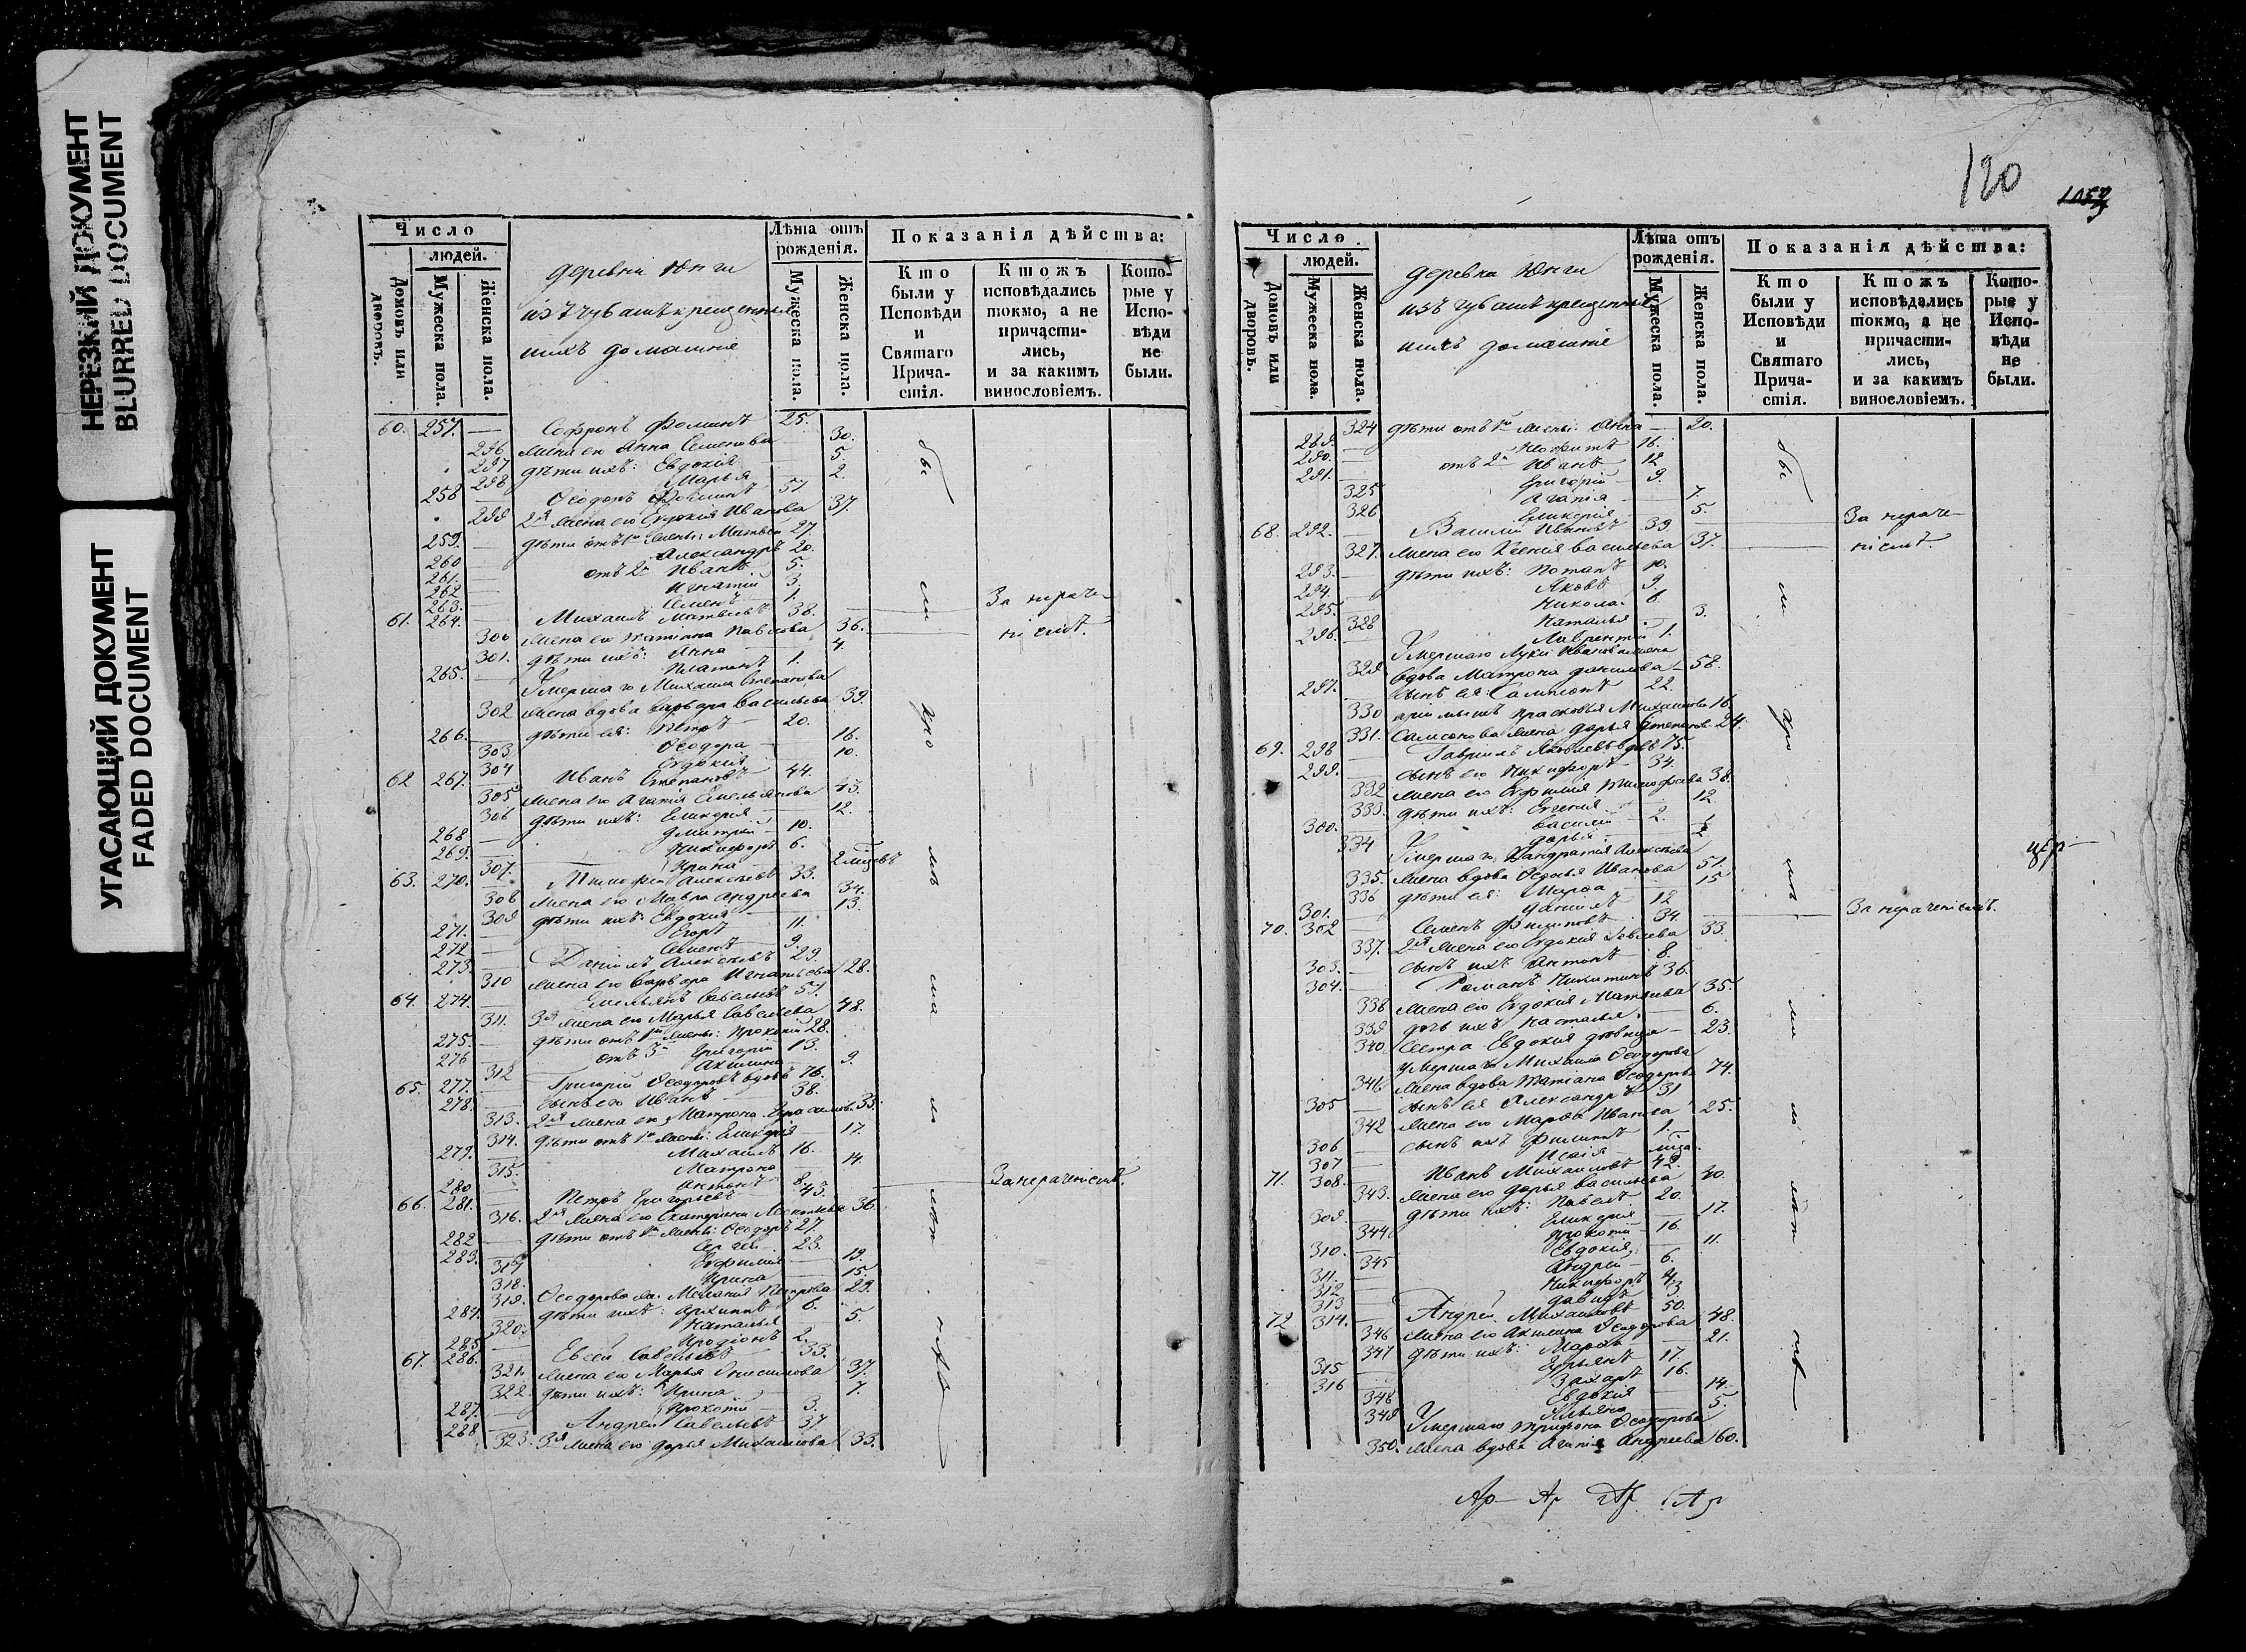 НЕРЕЗКИЙ ДОКУМЕНТ
BLURRED DOCUMENT
УГАСАЮЩИЙ ДОКУМЕНТ
FADED DOCUMENT
Число
людей.
Домовъ или дворовъ.
Мужеска пола.
Женска пола.
деревни Юнги
изъ чувашъ крещенныя
нихъ домашнiя
Лѣта отъ рожденія.
Мужеска пола.
Женска пола.
Показанія дѣйства:
Кто были у Исповѣди и Святаго Причастія.
Ктожъ исповѣдались токмо, а не причастились, и за какимъ винословіемъ.
Которые у Исповѣди не были.
60. 257. — Софронъ Фоминъ 25.
296 жена его Анна Семенова 30.
297 дѣти ихъ: Евдокія 5.
298 Марья 2.
258 — Ѳеодоръ Фоминъ 57
299 2я жена его Евдокія Иванова 37.
259. — дѣти отъ 1й жены: Матвѣй 27.
260 — Александръ 20.
261. — отъ 2й Иванъ 5.
262 — Игнатій 3.
263. — Семенъ 1.
61. 264. — Михаилъ Матвѣевъ 38.
300 жена его Татiана Павлова 36.
301. дѣти ихъ: Анна 4.
265. — Платонъ 1.
Умершаго Михаила Степанова
302 жена вдова Варвара Васильева 39.
266. — дѣти ея: Петръ 20.
303 Ѳеодора 16.
304 Евдокія 10.
62 267. — Иванъ Степановъ 44.
305 жена его Агапія Емельянова 43.
306 дѣти ихъ: Гликерія 12.
268 — Дмитрій 10.
269. — Никифоръ 6.
307. Ирина 2 мѣсяцевъ
63. 270. — Тимофей Алексѣевъ 33.
308 жена его Мавра Андреева 34.
309 дѣти ихъ: Евдокія 13.
271. — Егоръ 11.
272 — Семенъ 9.
273. — Даніилъ Алексѣевъ 29.
310 жена его Варвара Игнатьева 28.
64. 274. — Емельянъ Савельевъ 57.
311. 3я жена его Марья Савельева 48.
275. — дѣти отъ 1й жены: Прокопій 28.
276 — отъ 3й Григорій 13.
312 Акилина 9.
65. 277. — Григорій Ѳеодоровъ вдовъ 76.
278. — сынъ его Иванъ 38.
313. 2я жена его Матрона 35.
314. дѣти отъ 1й жены: Гликерія 17.
279. — Михаилъ 16.
315. Матрона 14.
280 — Антонъ 8.
66. 281. — Петръ Григорьевъ 43.
316. 2я жена его Екатерина 36.
282 — дѣти отъ 1й жены: Ѳеодоръ 27.
283. — Сергей 23.
317 Евфимія 19.
318. Ирина 15.
319. Ѳеодорова жена Меланія Петрова 29.
284. — дѣти ихъ: Архиппъ 6.
320. Наталья 5.
285. — Иродіонъ 2.
67. 286. — Евсей Савельевъ 33.
321. жена его Марья Онисимова 37.
322. дѣти ихъ: Ирина 7.
287. — Прокопій 3.
288 — Андрей Савельевъ 37
323. 3я жена его Дарья Михайлова 33.
За нераченіемъ.
За нераченіемъ.
120
1053
Число
людей.
Домовъ или дворовъ.
Мужеска пола.
Женска пола.
деревна Юнги
изъ чувашъ крещенныя
нихъ домашнiе
Лѣта отъ рожденія.
Мужеска пола.
Женска пола.
Показанія дѣйства:
Кто были у Исповѣди и Святаго Причастія.
Ктожъ исповѣдались токмо, а не причастились, и за какимъ винословіемъ.
Которые у Исповѣди не были.
324 дѣти отъ 1й жены: Анна — 20.
289. — 16.
290. — отъ 2й Иванъ 12
291. — Григорій 9.
325 Агапія 7.
326 Гликерія 5.
68. 292. — Василій Ивановъ 39.
327. жена его Ксенія Васильева 37.
293. — дѣти ихъ: Потапъ 10.
294. Яковъ 9.
295. Николай 6.
328 Наталья 3.
296. — Лаврентій 1.
Умершаго Луки Иванова жена
329 вдова Матрона Данилова 58.
297. — сынъ ея: Сампсонъ 22.
330 Прасковья Михайлова 16.
331. Самсонова жена Дарья Степанова 24.
69. 298 Гавріилъ Яковлевъ вдовъ 75.
299. — сынъ его Никифоръ 34.
332 жена его Евфимія Тимофеева 38.
333. дѣти ихъ: Евгенія 12
300. — Василій 2.
334 Дарья ½
Умершаго Кандратія Алексѣева
335. жена вдова Ѳедосья Иванова 51.
336 дѣти ея: Марѳа 15
301. Даніилъ 12
70. 302 — Семенъ Филиповъ 34.
337. 2я жена его Евдокія 33.
303. — сынъ ихъ Антонъ 8.
304. — Романъ Никитинъ 36.
338 жена его Евдокія Матвѣева 35.
339 дочь ихъ Наталья 6.
340 Сестра Евдокія дѣвица — 23.
умершаго Михаила Ѳеодорова
341. жена вдова Татiана Ѳеодорова 74.
305 — сынъ ея Александръ 31
342 жена его Марѳа Иванова 25.
306 — сынъ ихъ Филиппъ 1.
307 — Исаія
71. 308. — Иванъ Михаиловъ 42.
343. жена его Дарья Васильева 40.
309. — дѣти ихъ: Павелъ 20.
344 Гликерія 17.
310. — Прокопій 16.
345 Евдокія 11.
311. — Андрей 6.
312 — Никифоръ 4.
313 — Давидъ 3
72 314. — Андрей Михаиловъ 50.
346 жена его Акилина Ѳеодорова 48.
347 дѣти ихъ: Марѳа 21.
315 — 17.
316 — Захаръ 16.
348 Евдокія 14.
349 Ульяна 5.
Умершаго Трифона Ѳеодорова
350. жена вдова Агапія Андреева 60.
За нераченіемъ.
За нераченіемъ.